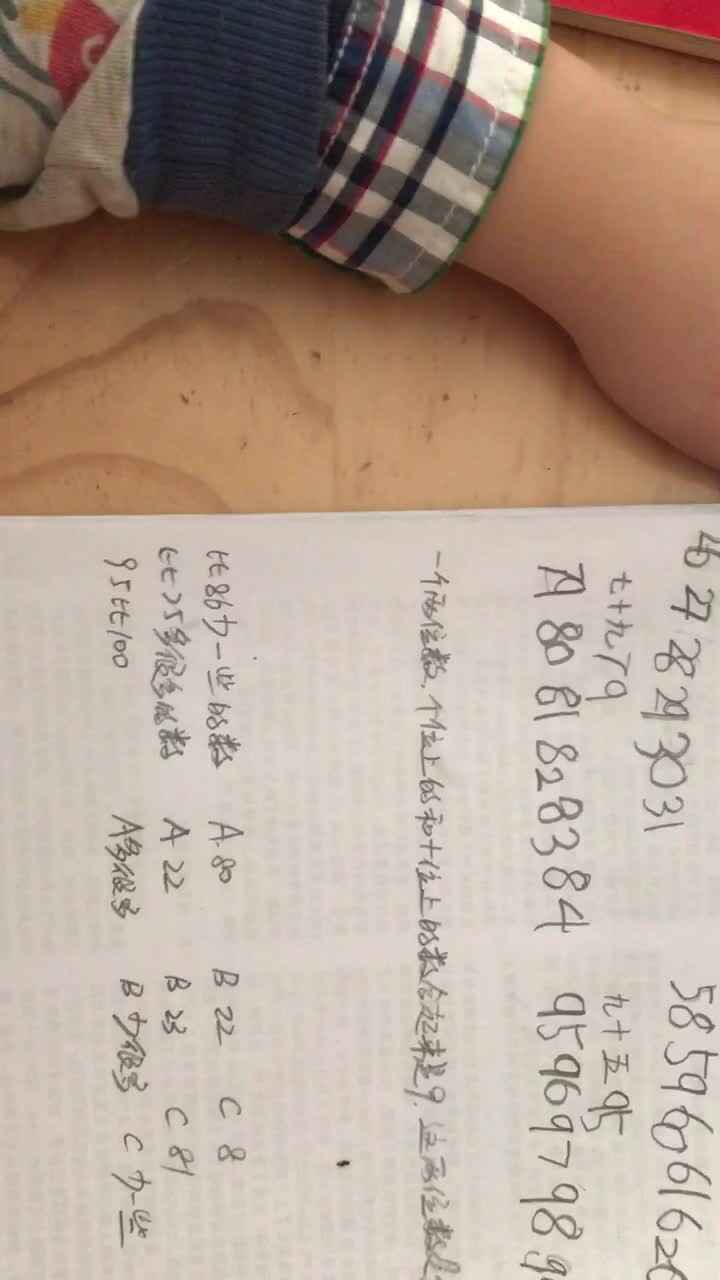 26 27 28 29 30 31 58 59 60 61 62
七十九 79 九十五 95
79 80 81 82 83 84 95 96 97 98
一个两位数,个位上的和十位上的数合起来是9.这两位数是
比86少一些的数 A.80 B 22 C 8
比25多很多的数 A 22 B 23 C 81
95比100 A多很多 B 少很多 C 少一些